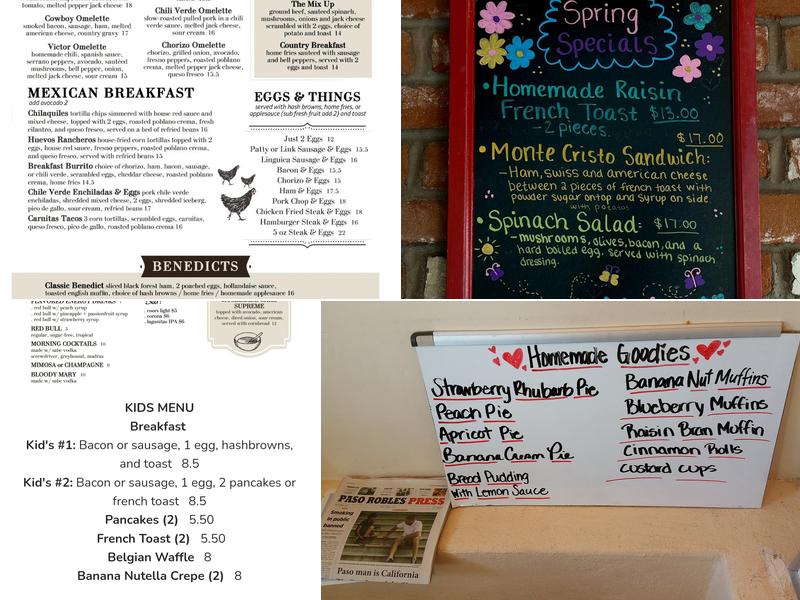 tomato, melted pepper jack cheese 18
Cowboy Omelette
smokey bacon, sausage, ham, melted
american cheese, country gravy 17
Victor Omelette
homemade chili, spanish sauce,
serrano peppers, avocado, sautéed
mushrooms, bell pepper, onion,
melted jack cheese, sour cream 15
Chili Verde Omelette
slow-roasted pulled pork in a chili
verde sauce, melted jack cheese,
sour cream 16
Chorizo Omelette
chorizo, grilled onion, avocado,
fresno peppers, roasted poblano
crema, melted pepper jack cheese,
queso fresco 15.5
The Mix Up
ground beef, sautéed spinach,
mushrooms, onions and jack cheese
scrambled with 2 eggs, choice of
potato and toast 14
Country Breakfast
home fries sauteed with sausage
and bell peppers, served with 2
eggs and toast 14
MEXICAN BREAKFAST
add avocado 2
Chilaquiles tortilla chips simmered with house red sauce and
mixed cheese, topped with 2 eggs, roasted poblano crema, fresh
cilantro, and queso fresco, served on a bed of refried beans 16
Huevos Rancheros house-fried corn tortillas topped with 2
eggs, house red sauce, fresno peppers, roasted poblano crema,
and queso fresco, served with refried beans 15
Breakfast Burrito choice of chorizo, ham, bacon, sausage,
or chili verde, scrambled eggs, cheddar cheese, roasted poblano
crema, home fries 14.5
Chile Verde Enchiladas & Eggs pork chile verde
enchiladas, shredded mixed cheese, 2 eggs, shredded iceberg,
pico de gallo, sour cream, refried beans 17
Carnitas Tacos 3 corn tortillas, scrambled eggs, carnitas,
queso fresco, pico de gallo, roasted poblano crema 16
EGGS & THINGS
served with hash browns, home fries, or
applesauce (sub fresh fruit add 2) and toast
Just 2 Eggs 12
Patty or Link Sausage & Eggs 15.5
Linguica Sausage & Eggs 16
Bacon & Eggs 15.5
Chorizo & Eggs 15
Ham & Eggs 17.5
Pork Chop & Eggs 18
Chicken Fried Steak & Eggs 18
Hamburger Steak & Eggs 16
5 oz Steak & Eggs 22
BENEDICTS
Classic Benedict sliced black forest ham, 2 poached eggs, hollandaise sauce,
toasted english muffin, choice of hash browns / home fries / homemade applesauce 16
Spring
Specials
•Homemade Raisin
French Toast $13.00
-2 pieces.
$17.00
•Monte Cristo Sandwich:
-Ham, swiss and american cheese
between 2 pieces of french toast with
powder sugar ontop and syrup on side
with potatos
•Spinach Salad: $17.00
-mushrooms, olives, bacon, and a
hard boiled egg. served with spinach
dressing.
FLAVORED ENERGY DRINKS
. red bull w/ peach syrup
. red bull w/ pineapple + passionfruit syrup
. red bull w/ strawberry syrup
RED BULL 5
regular, sugar-free, tropical
MORNING COCKTAILS 10
made w/ sabe vodka
screwdriver, greyhound, madras
MIMOSA or CHAMPAGNE 9
BLOODY MARY 10
made w/ sabe vodka
. coors light $5
. corona $6
. lagunitas IPA $6
SUPREME
topped with avocado, american
cheese, diced onion, sour cream,
served with cornbread 12
KIDS MENU
Breakfast
Kid's #1: Bacon or sausage, 1 egg, hashbrowns,
and toast 8.5
Kid's #2: Bacon or sausage, 1 egg, 2 pancakes or
french toast 8.5
Pancakes (2) 5.50
French Toast (2) 5.50
Belgian Waffle 8
Banana Nutella Crepe (2) 8
Homemade Goodies
Strawberry Rhubarb Pie
Peach Pie
Apricot Pie
Banana Cream Pie
Bread Pudding
With Lemon Sauce
Banana Nut Muffins
Blueberry Muffins
Raisin Bran Muffin
Cinnamon Rolls
Custard cups
PASO ROBLES PRESS
Smoking
in public
banned
Paso man is California